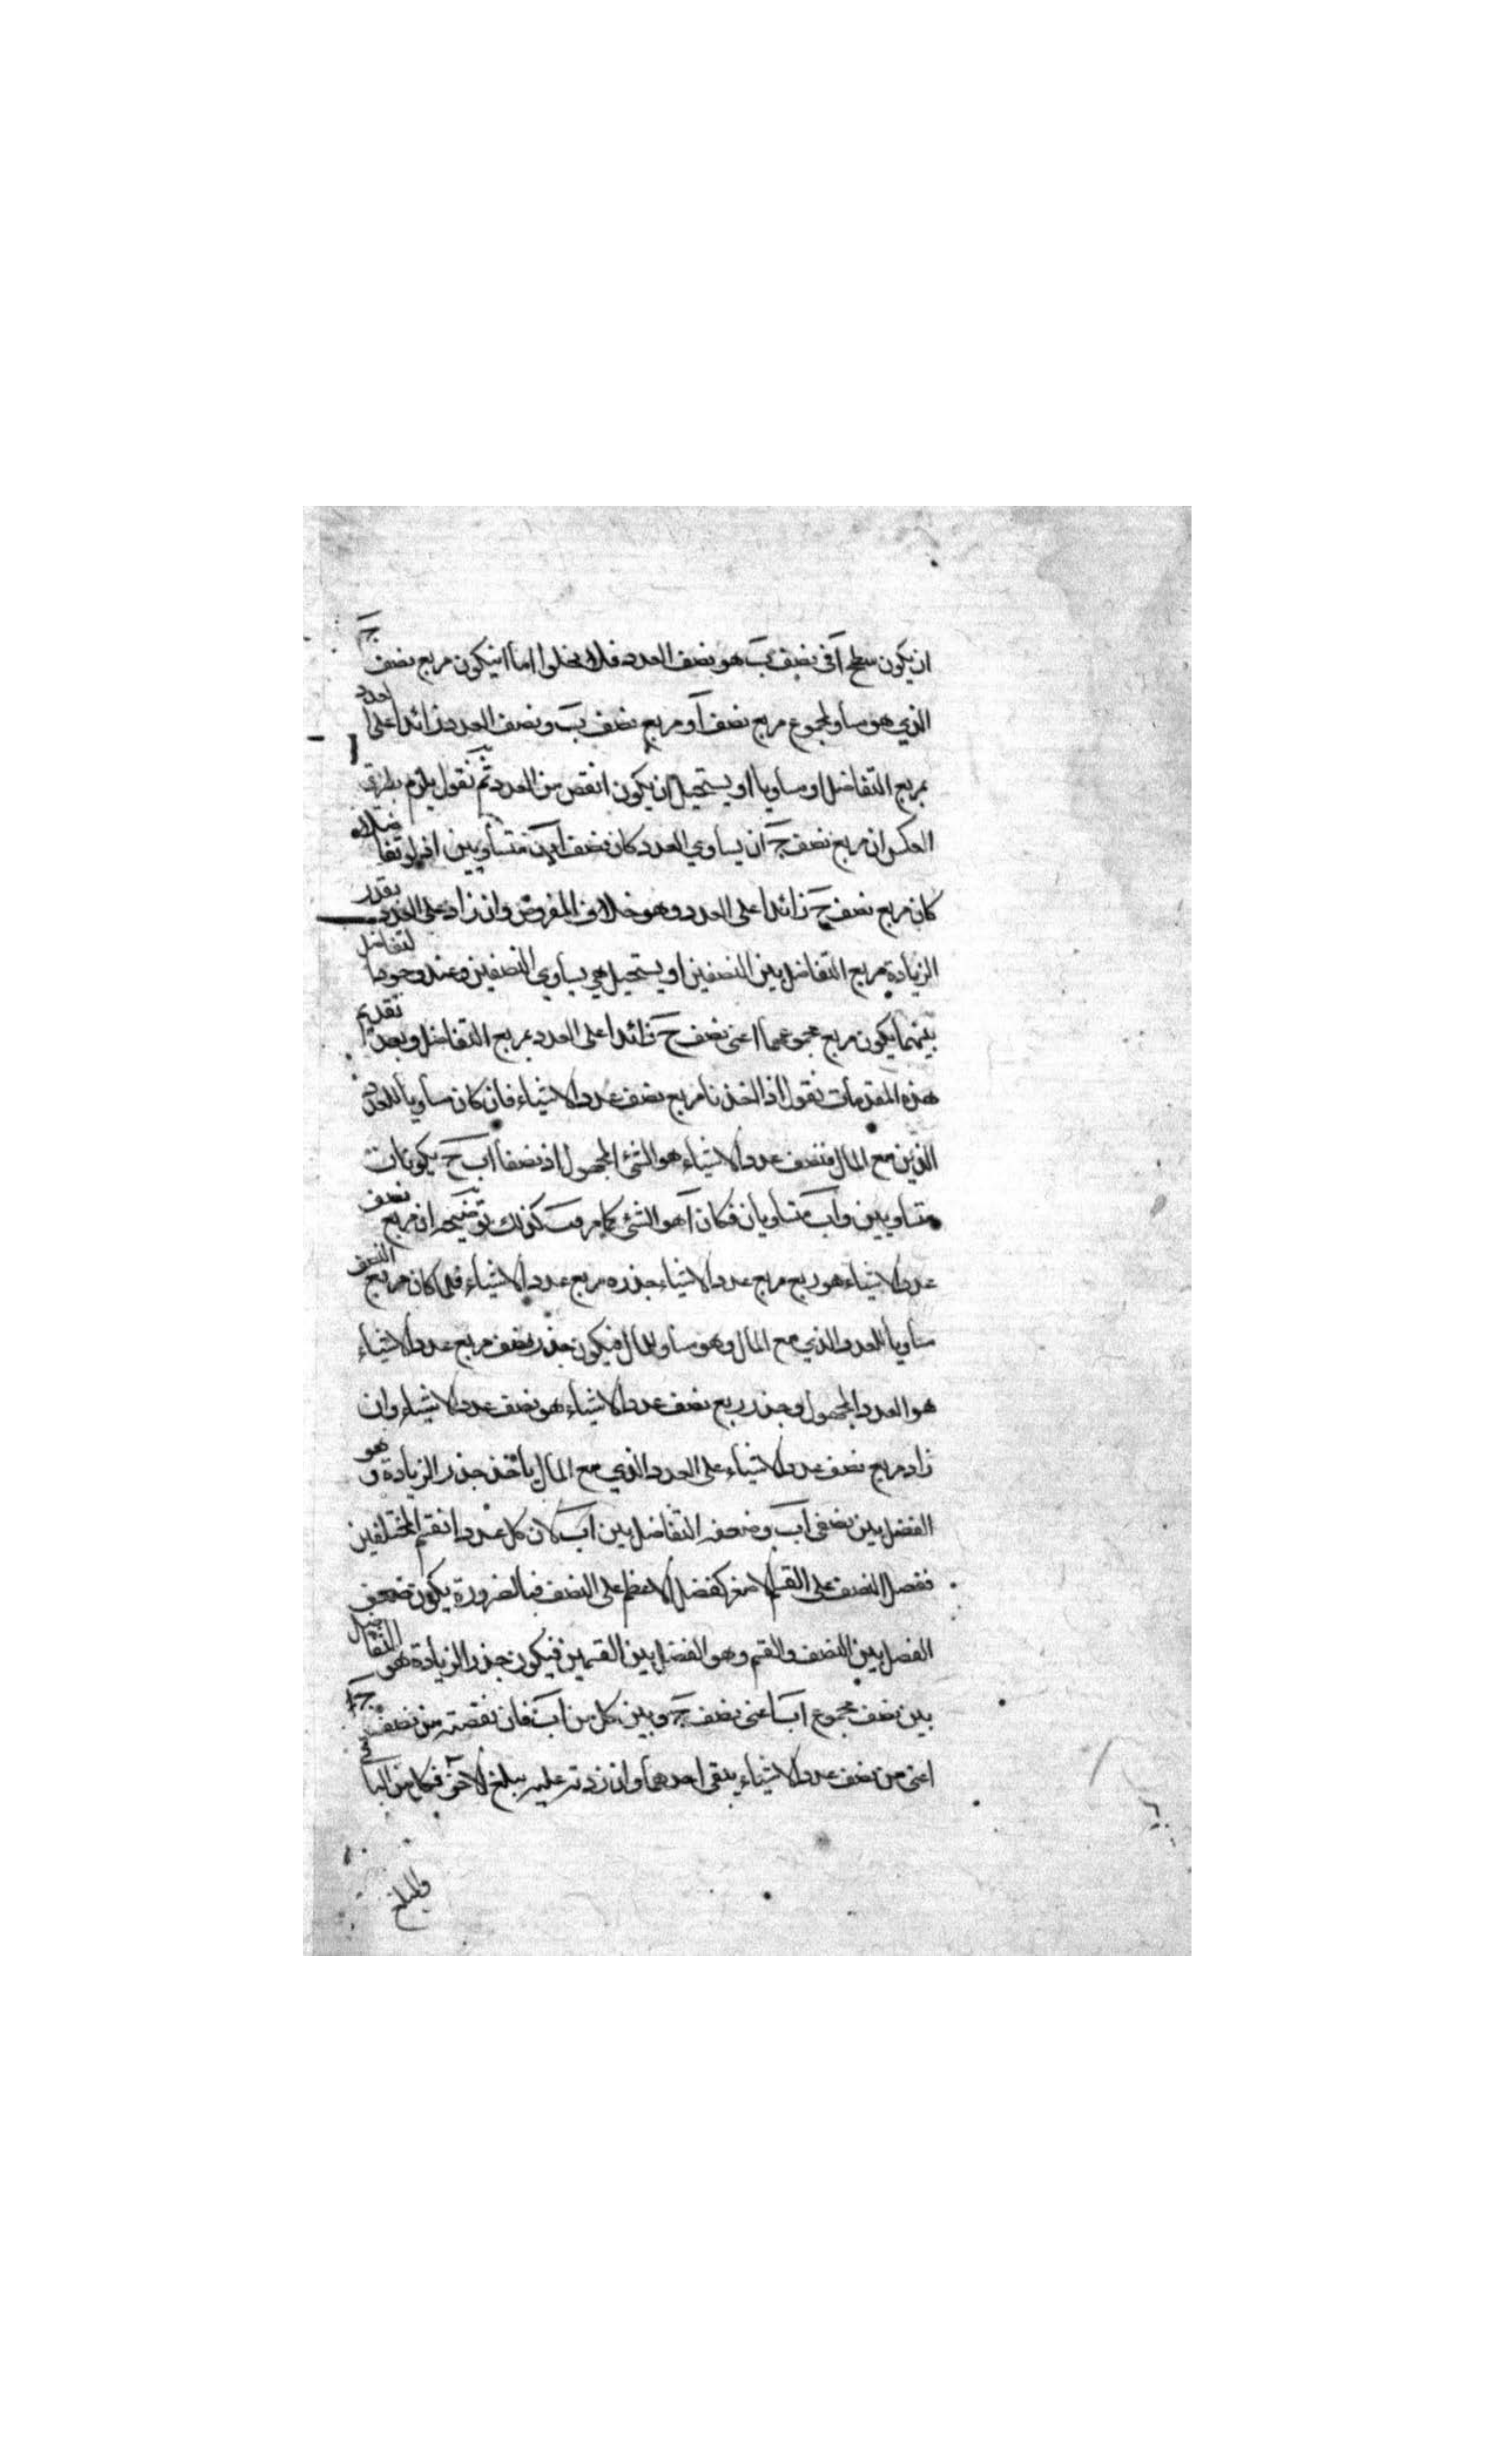 ان يكون سطح آ في نصف بَ هو نصف العدد فلا يخلوا اما ان يكون مربع نصف جَ
الذي هو مساو لمجموع مربع نصف آ و مربع نصف بَ و نصف العدد زائدا على العدد
بمربع التفاضل او مساويا او يستحيل ان يكون انقص من العدد ثم نقول يلزم بطريق
العكس ان مربع نصف جَ ان يساوي العدد كان نصفا آب متساويين اذ لو تفاضلا
كان مربع نصف جَ زائدا على العدد وهو خلاف المفروض وان زاد على العدد بقدر
الزيادة مربع التفاضل بين النصفين او يستحيل هي يساوي النصفين وعند وجود التفاضل
بينهما يكون مربع مجموعهما اعني نصف جَ زائدا على العدد بمربع التفاضل وبعد تقديم
هذه المقدمات نقول اذا اخذنا مربع نصف عدد الاشياء فان كان مساويا للعدد
الذين مع المال فنصف عدد الاشياء هو الشئ المجهول اذ نصفا آب جَ يكونان
متساويين وآب متساويان فكان آ هو الشئ كما مر فب كذلك توضيحه ان مربع نصف
عدد الاشياء هو ربع مربع عدد الاشياء جذره مربع عدد الاشياء فلما كان مربع النصف
مساويا للعدد الذي مع المال وهو مساو للمال فيكون جذر نصف مربع عدد الاشياء
هو العدد المجهول وجذر ربع نصف عدد الاشياء هو نصف عدد الاشياء وان
زاد مربع نصف عدد الاشياء على العدد الذي مع المال يأخذ جذر الزيادة و هو
الفضل بين نصفي آبَ وضعفه التفاضل بين آبَ لان كل عدد انقسم المختلفين
ففضل النصف على القسم الاصغر كفضل الاعظم على النصف فبالضرورة يكون ضعف
الفضل بين النصف والقسم وهو الفضل بين القسمين فيكون جذر الزيادة هو التفاضل
بين نصف مجموع آب اعني نصف جَ وبين كل من آبَ فان نقصته من نصف جَ
اعني من نصف عدد الاشياء يبقى احدهما وان زدته عليه يبلغ الآخر فكل من الباقي
والمبلغ